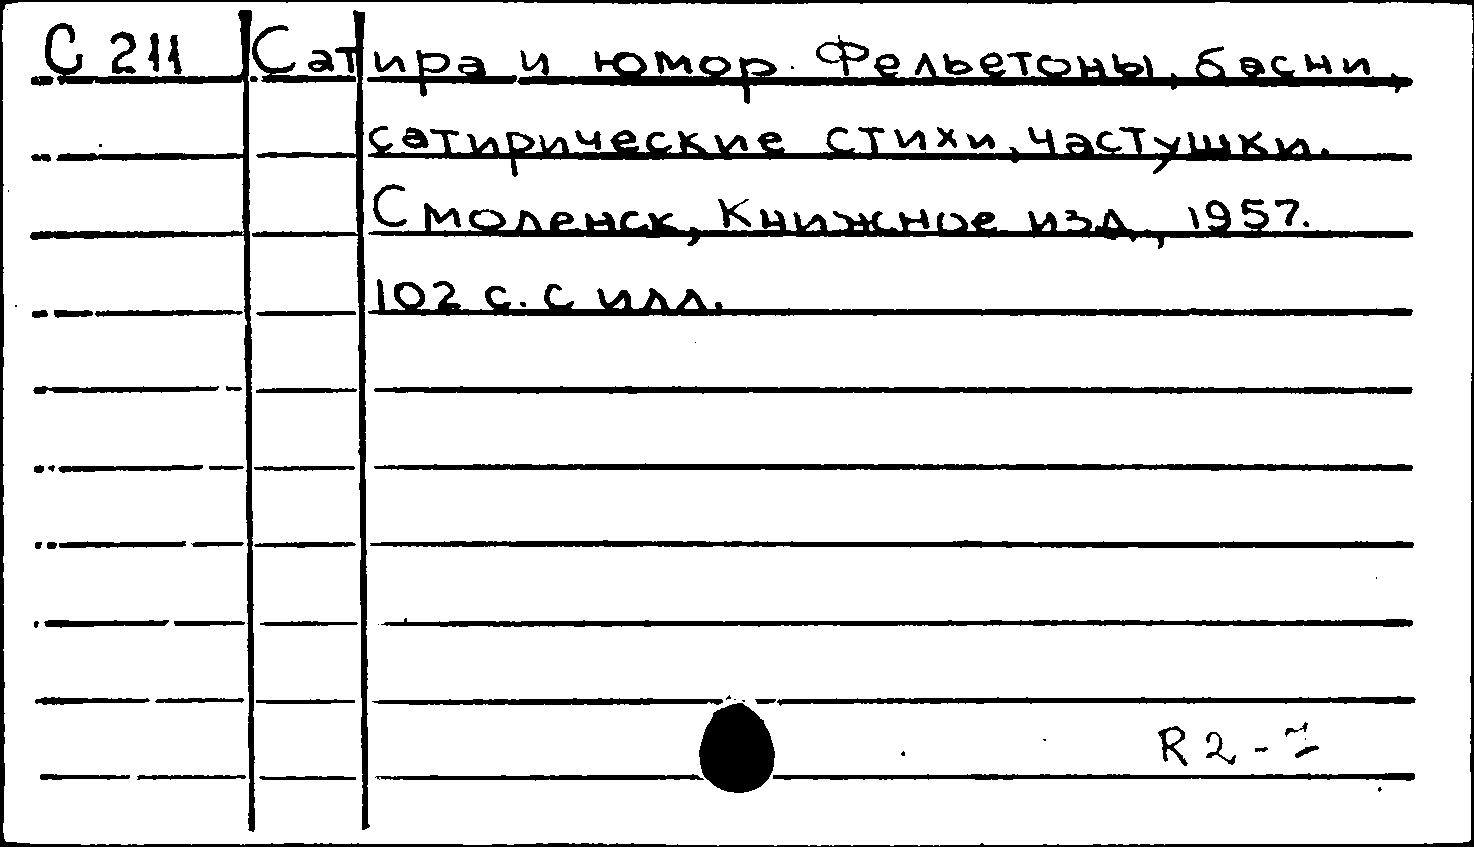 С 211 Сатира и юмор. Фельетоны, басни,
сатирические стихи, частушки.
Смоленск, Книжное изд., 1957.
102 с. с илл.
R 2 - 7